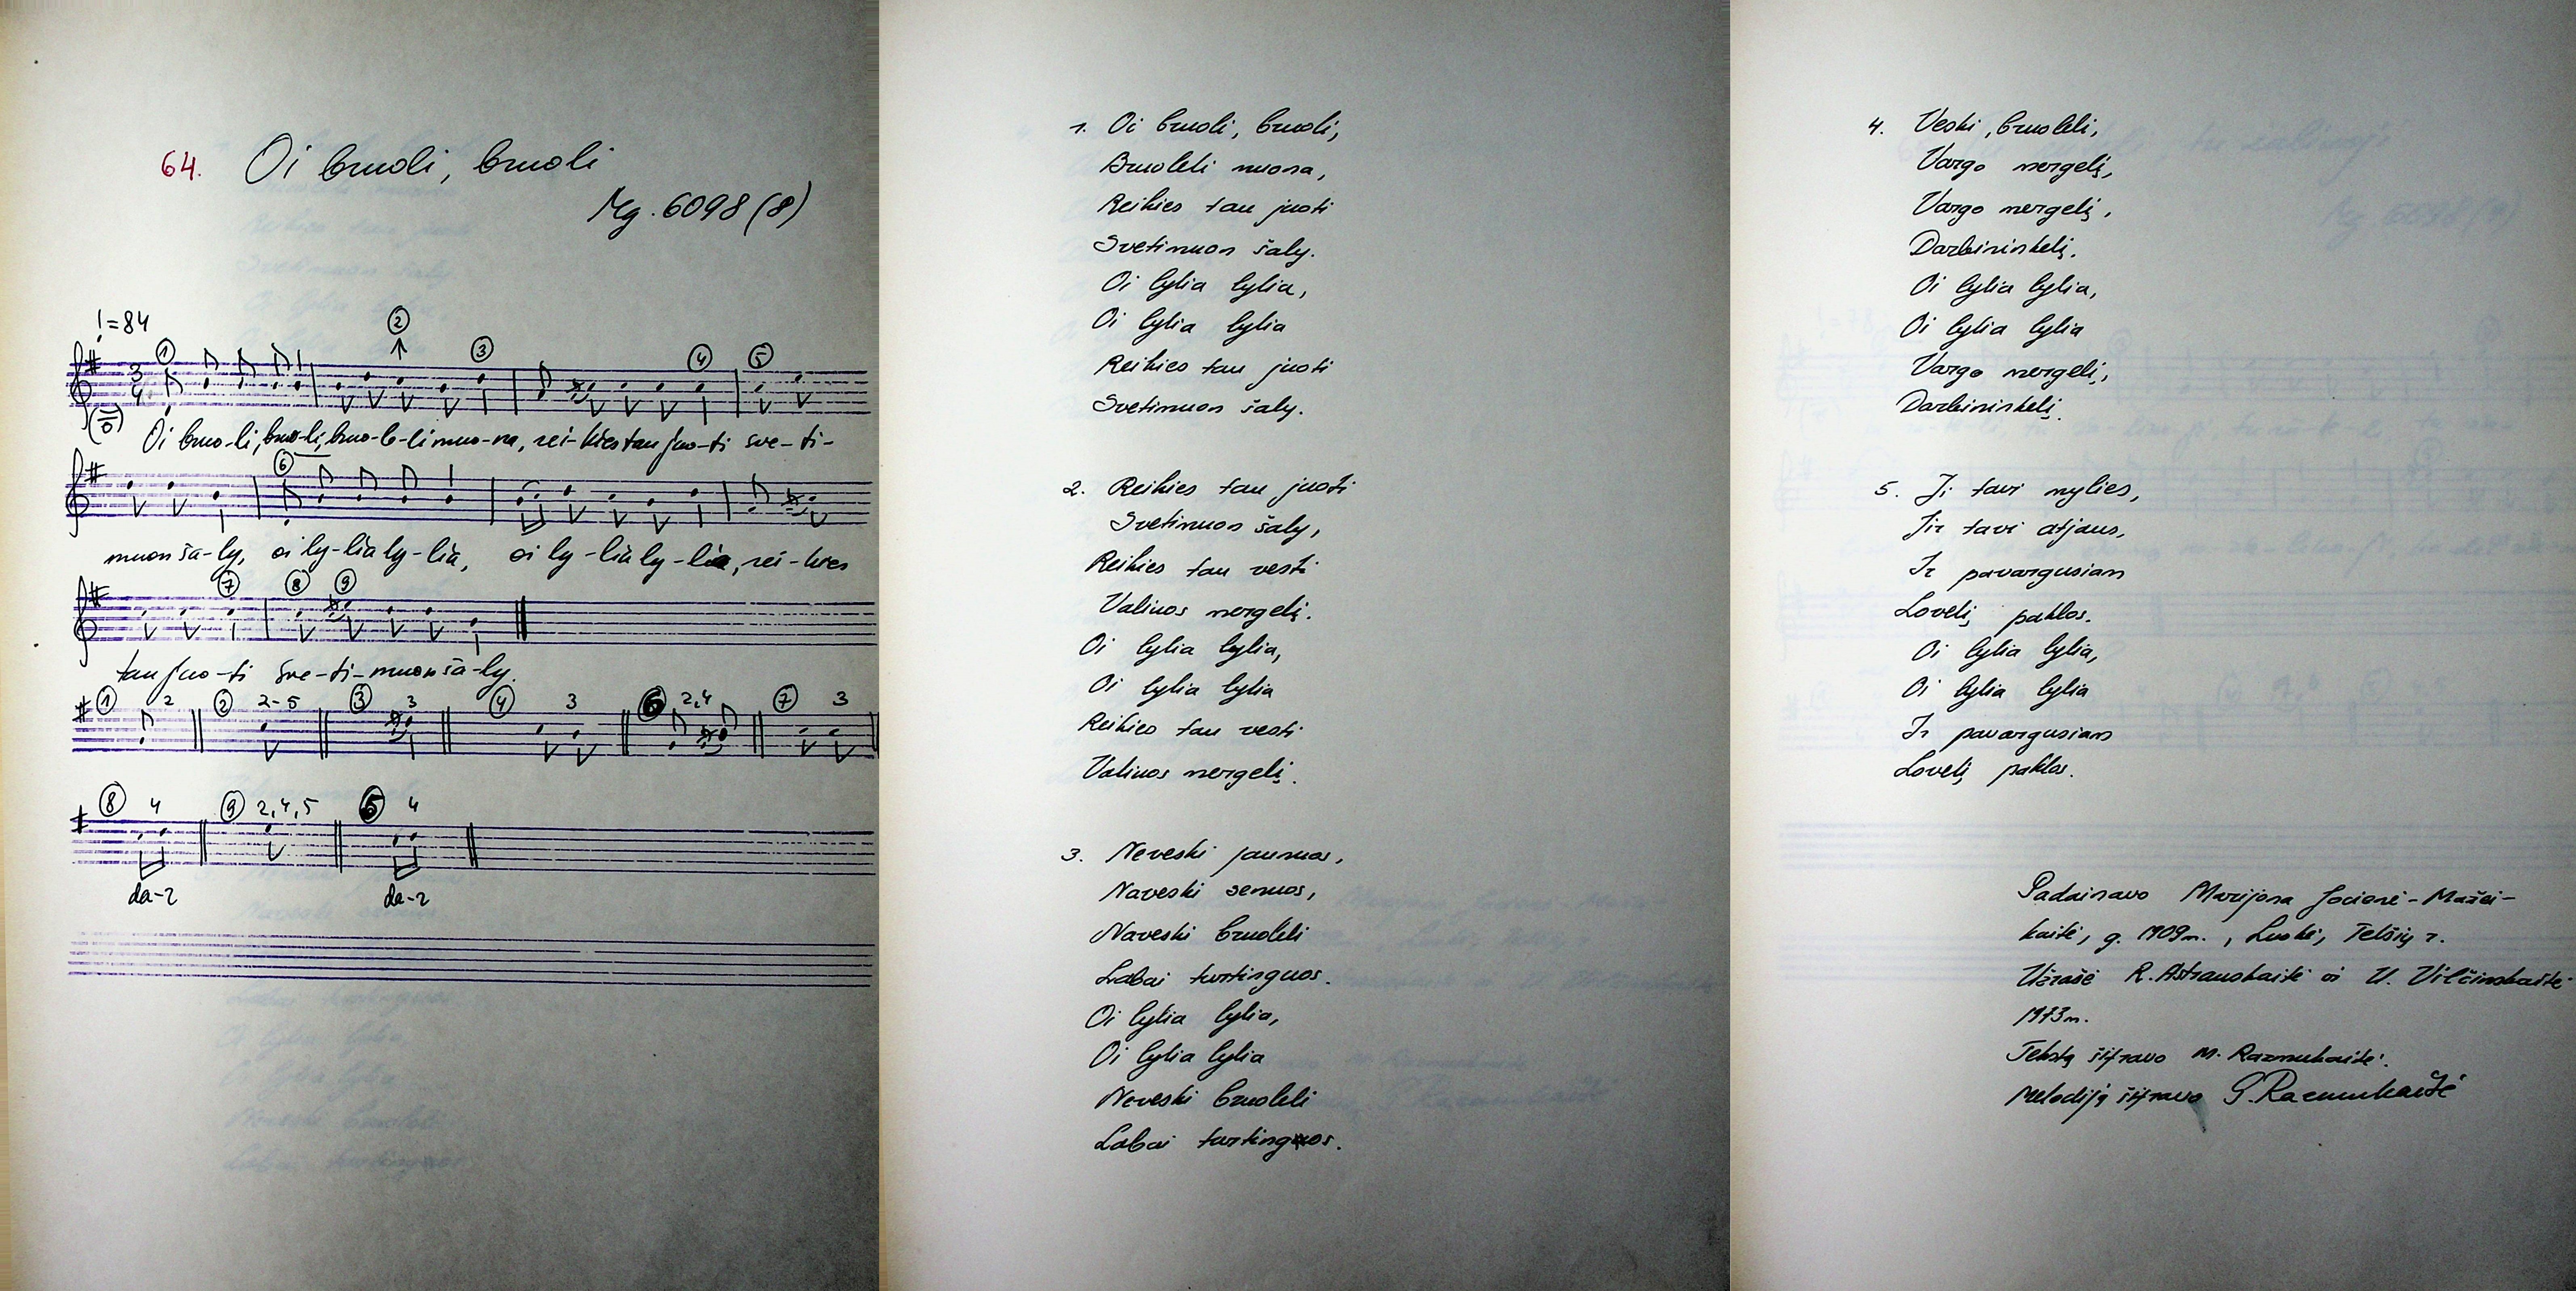 64. Oi bruoli, bruoli
Mg. 6098 (8)
= 84
① ② ③ ④ ⑤
3
4
Oi bruo-li, bruo-li, bruo-le-li muo-na, rei-kies tau juo-ti sve-ti-
⑥
muon ša-ly, oi ly-lia ly-lia, oi ly-lia ly-lia, rei-kies
⑦ ⑧ ⑨
tau juo-ti sve-ti-muon ša-ly.
① 2 ② 2-5 ③ 3 ④ 3 ⑥ 2,4 ⑦ 3
⑧ 4 ⑨ 2,4,5 ⑤ 4
da-r da-r
1. Oi bruoli, bruoli,
Bruoleli muona,
Reikies tau juoti
Svetimuon šaly.
Oi lylia lylia,
Oi lylia lylia
Reikies tau juoti
Svetimuon šaly.
2. Reikies tau juoti
Svetimuon šaly,
Reikies tau vesti
Valiuos mergelį.
Oi lylia lylia,
Oi lylia lylia
Reikies tau vesti
Valiuos mergelį.
3. Neveski jaunuos,
Naveski senuos,
Naveski bruoleli
Labai turtinguos.
Oi lylia lylia,
Oi lylia lylia
Neveski bruoleli
Labai turtinguos.
4. Veski, bruoleli,
Vargo mergelį,
Vargo mergelį,
Darbininkelį.
Oi lylia lylia,
Oi lylia lylia
Vargo mergelį,
Darbininkelį.
5. Ji tavi mylies,
Jir tavi atjaus,
Ir pavargusiam
Lovelį paklos.
Oi lylia lylia,
Oi lylia lylia
Ir pavargusiam
Lovelį paklos.
Padainavo Marijona Jocienė-Mažei-
kaitė, g. 1909 m., Luokė, Telšių r.
Užrašė R. Astrauskaitė ir V. Vilčinskaitė
1973 m.
Tekstą šifravo M. Razmukaitė.
Melodiją šifravo G. Razmukaitė